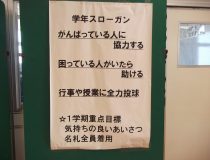 学年スローガン
がんばっている人に
協力する
困っている人がいたら
助ける
行事や授業に全力投球
☆1学期重点目標
気持ちの良いあいさつ
名札全員着用